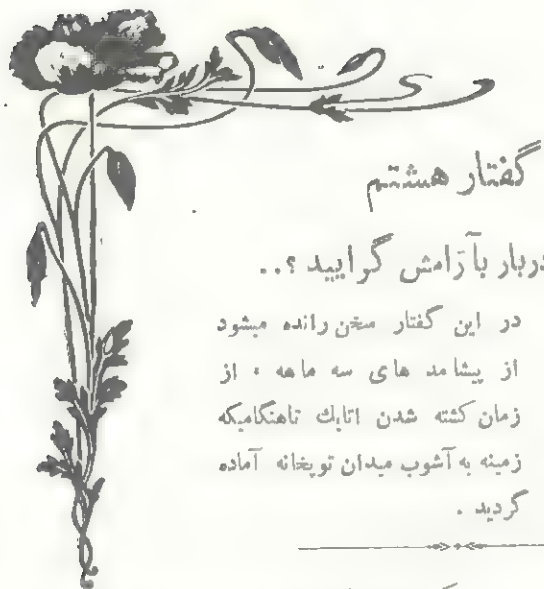 گفتار هشتم
دربار بآرامش گرایید ؟..
در این گفتار سخن رانده میشود
از پیشامد های سه ماهه ، از
زمان کشته شدن اتابك تاهنگامیکه
زمینه به آشوب میدان توپخانه آماده
گردید .